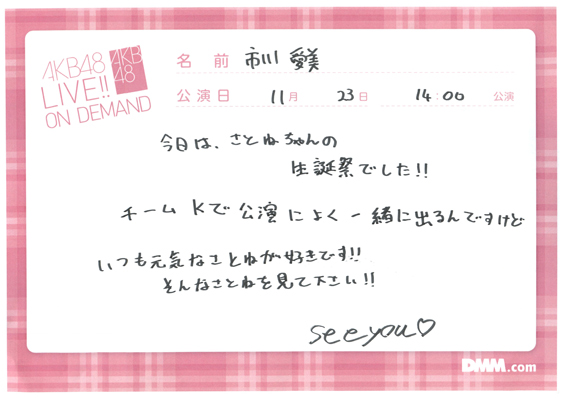 AKB48
LIVE!!
ON DEMAND
AKB
48
名前 市川 愛美
公演日 11月 23日 14:00 公演
今日は、さとねちゃんの
生誕祭でした!!
チームKで公演によく一緒に出るんですけど
いつも元気なさとねが好きです!!
そんなさとねを見て下さい!!
see you♡
DMM.com